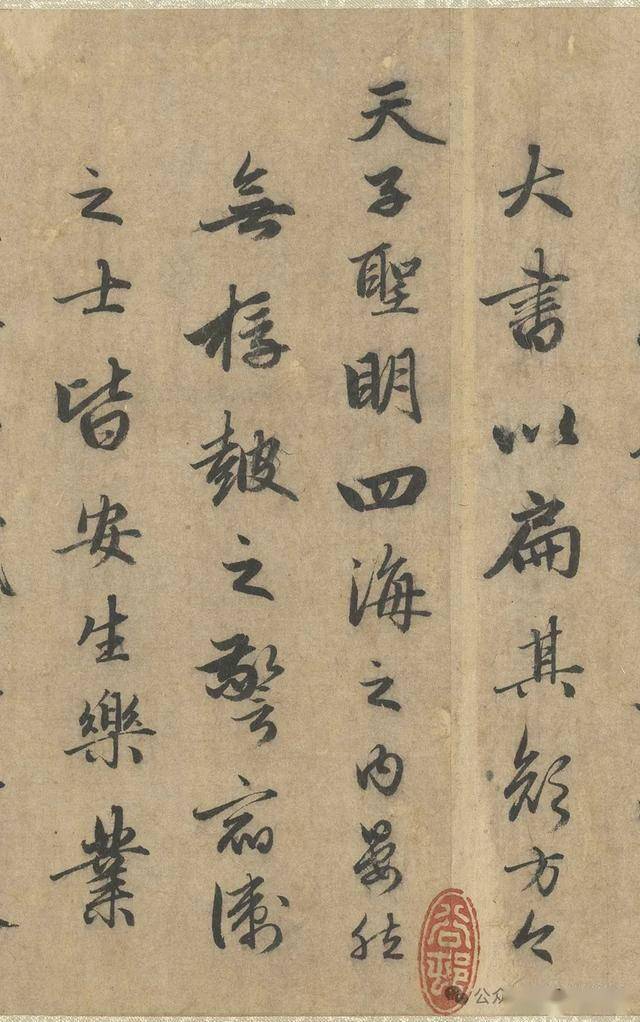 大書以扁其顏方今
天子聖明四海之内晏然
無桴鼓之警宿衛
之士皆安生樂業
公众